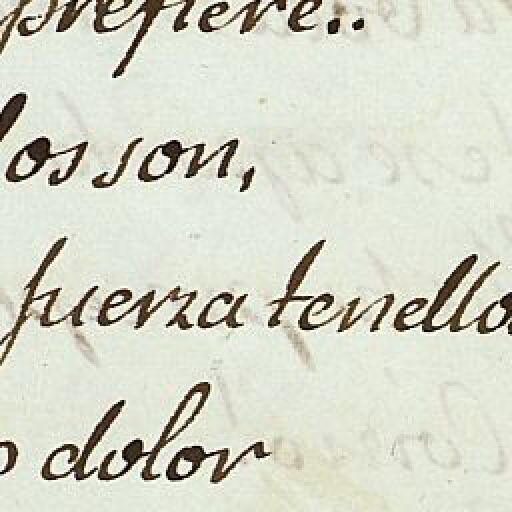 prefiere..
los son,
fuerza tenellos
o dolor